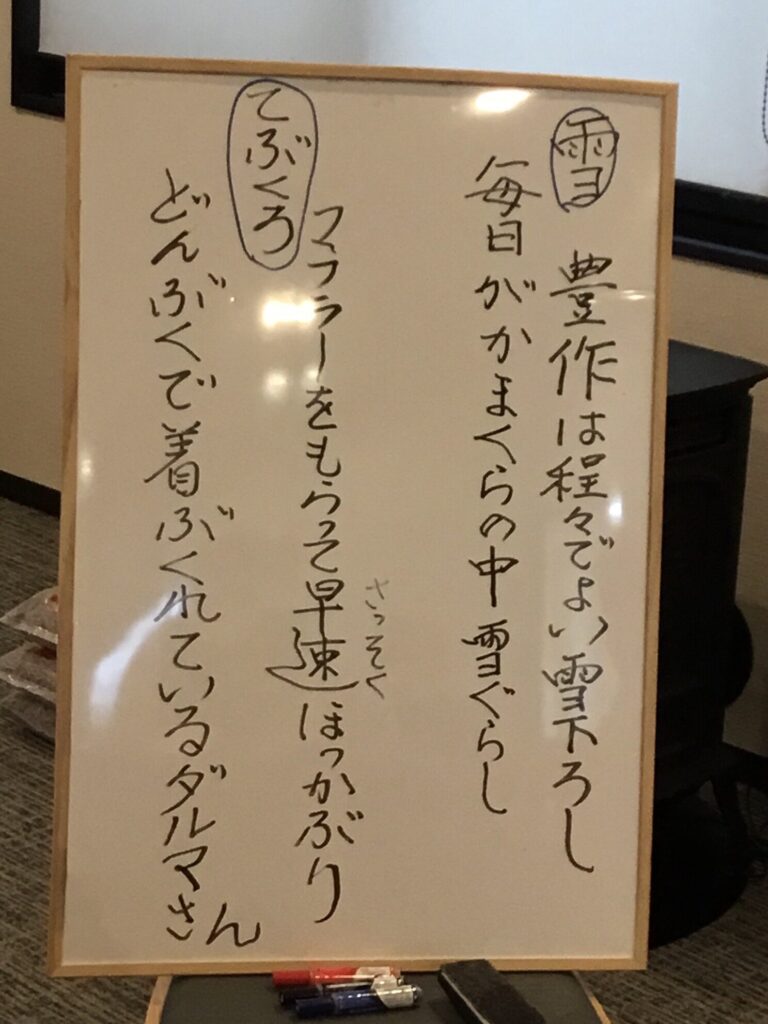 雪
豊作は程々でよい雪下ろし
毎日がかまくらの中雪ぐらし
てぶくろ
マフラーをもらって早速ほっかぶり
さっそく
どんぶくで着ぶくれているダルマさん